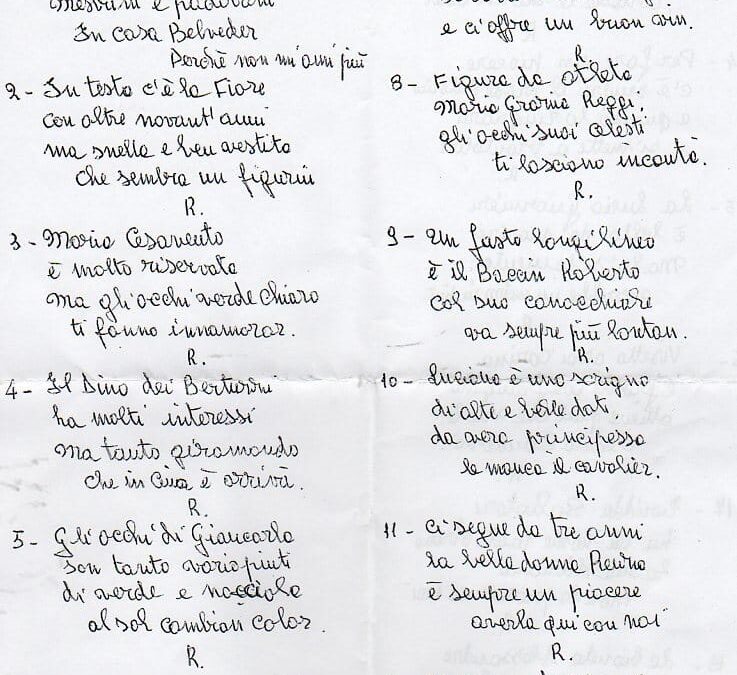 Mestrini e padovani
In casa Belveder
Perchè non m'ami più
2 - In testa c'è la Fiore
con oltre novant'anni
ma snella e ben vestita
che sembra un figurin
R.
3 - Maria Cesavento
è molto riservata
ma gli occhi verde chiaro
ti fanno innamorar.
R.
4 - Il Dino dei Berturoni
ha molti interessi
ma tanto giramondo
che in Cina è arrivà.
R.
5 - Gli occhi di Giancarla
son tanto variopinti
di verde e nocciola
al sol cambian color.
R.
e ci offre un buon vin.
R
8 - Figura da atleta
Maria Grazia Reggi,
gli occhi suoi celesti
ti lasciano incantà.
R.
9 - Un fusto longilineo
è il Baccin Roberto
col suo canocchiale
va sempre più lontan.
R.
10 - Luciana è uno scrigno
di alte e belle doti
da vera principessa
le manca il cavalier.
R.
11 - Ci segue da tre anni
la bella donna Pierina
è sempre un piacere
averla qui con noi
R.